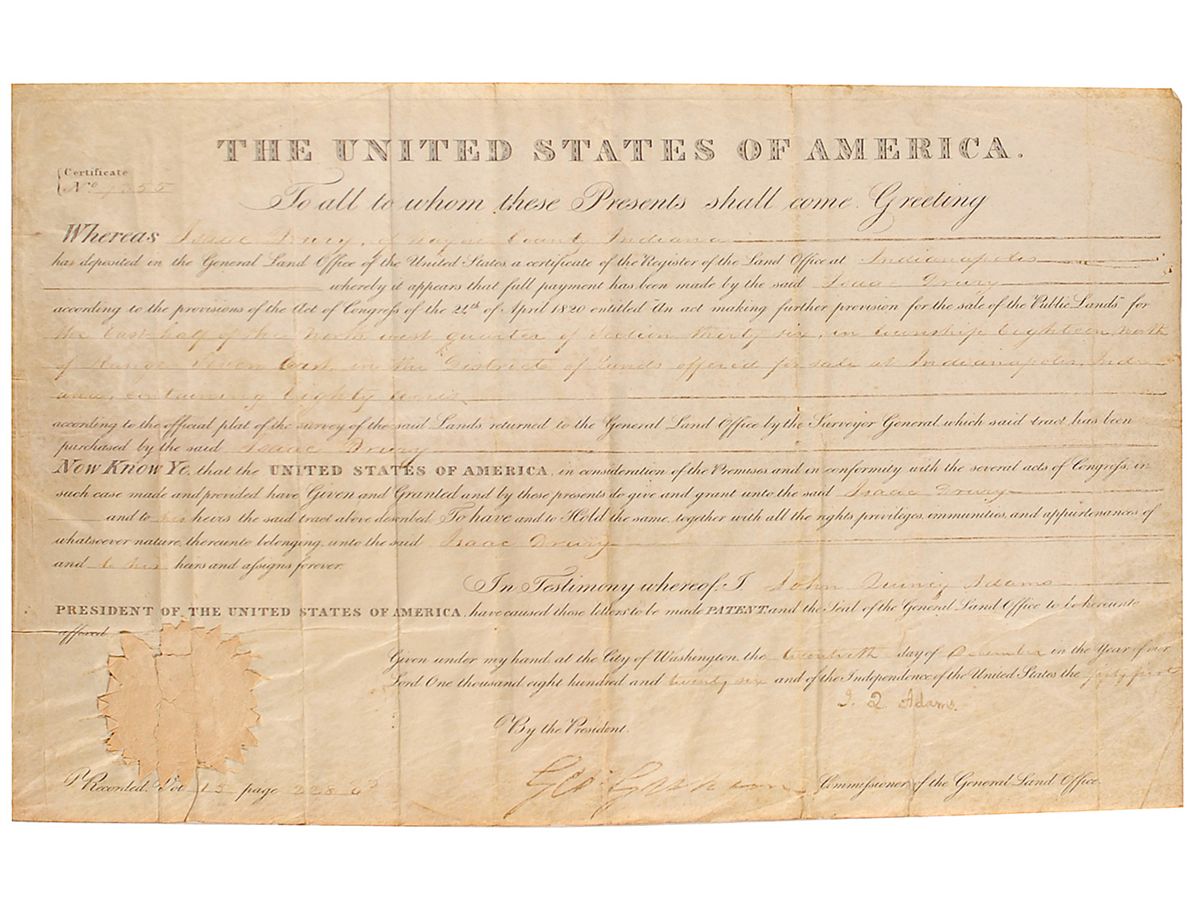 THE UNITED STATES OF AMERICA.
Certificate
No
To all to whom these Presents shall come Greeting
Whereas Isaac Drury, of Wayne County Indiana
has deposited in the General Land Office of the United States, a certificate of the Register of the Land Office at Indianapolis
whereby it appears that full payment has been made by the said Isaac Drury
according to the provisions of the Act of Congress of the 24th of April 1820 entitled "An act making further provision for the sale of the Public Lands" for
the East half of the North west quarter of Section thirty six, in Township Eighteen, North
of Range East, in the District of Lands offered for sale at Indianapolis, Indi
ana, containing Eighty acres
according to the official plat of the survey of the said Lands returned to the General Land Office by the Surveyor General, which said tract has been
purchased by the said Isaac Drury
Now Know Ye, that the UNITED STATES OF AMERICA, in consideration of the Premises and in conformity with the several acts of Congress, in
such case made and provided have Given and Granted and by these presents do give and grant unto the said Isaac Drury
and to his heirs the said tract above described, To have and to Hold the same, together with all the rights privileges, immunities, and appurtenances of
whatsoever nature, thereunto belonging, unto the said Isaac Drury
and to his heirs and assigns forever.
In Testimony whereof, I John Quincy Adams
PRESIDENT OF THE UNITED STATES OF AMERICA, have caused those letters to be made PATENT, and the Seal of the General Land Office to be hereunto
affixed
Given under my hand, at the City of Washington, the twentieth day of December in the Year of our
Lord One thousand eight hundred and twenty six and of the Independence of the United States the fifty first
J. Q. Adams.
By the President.
Geo: Graham Commissioner of the General Land Office.
Recorded, Vol 15 page 228